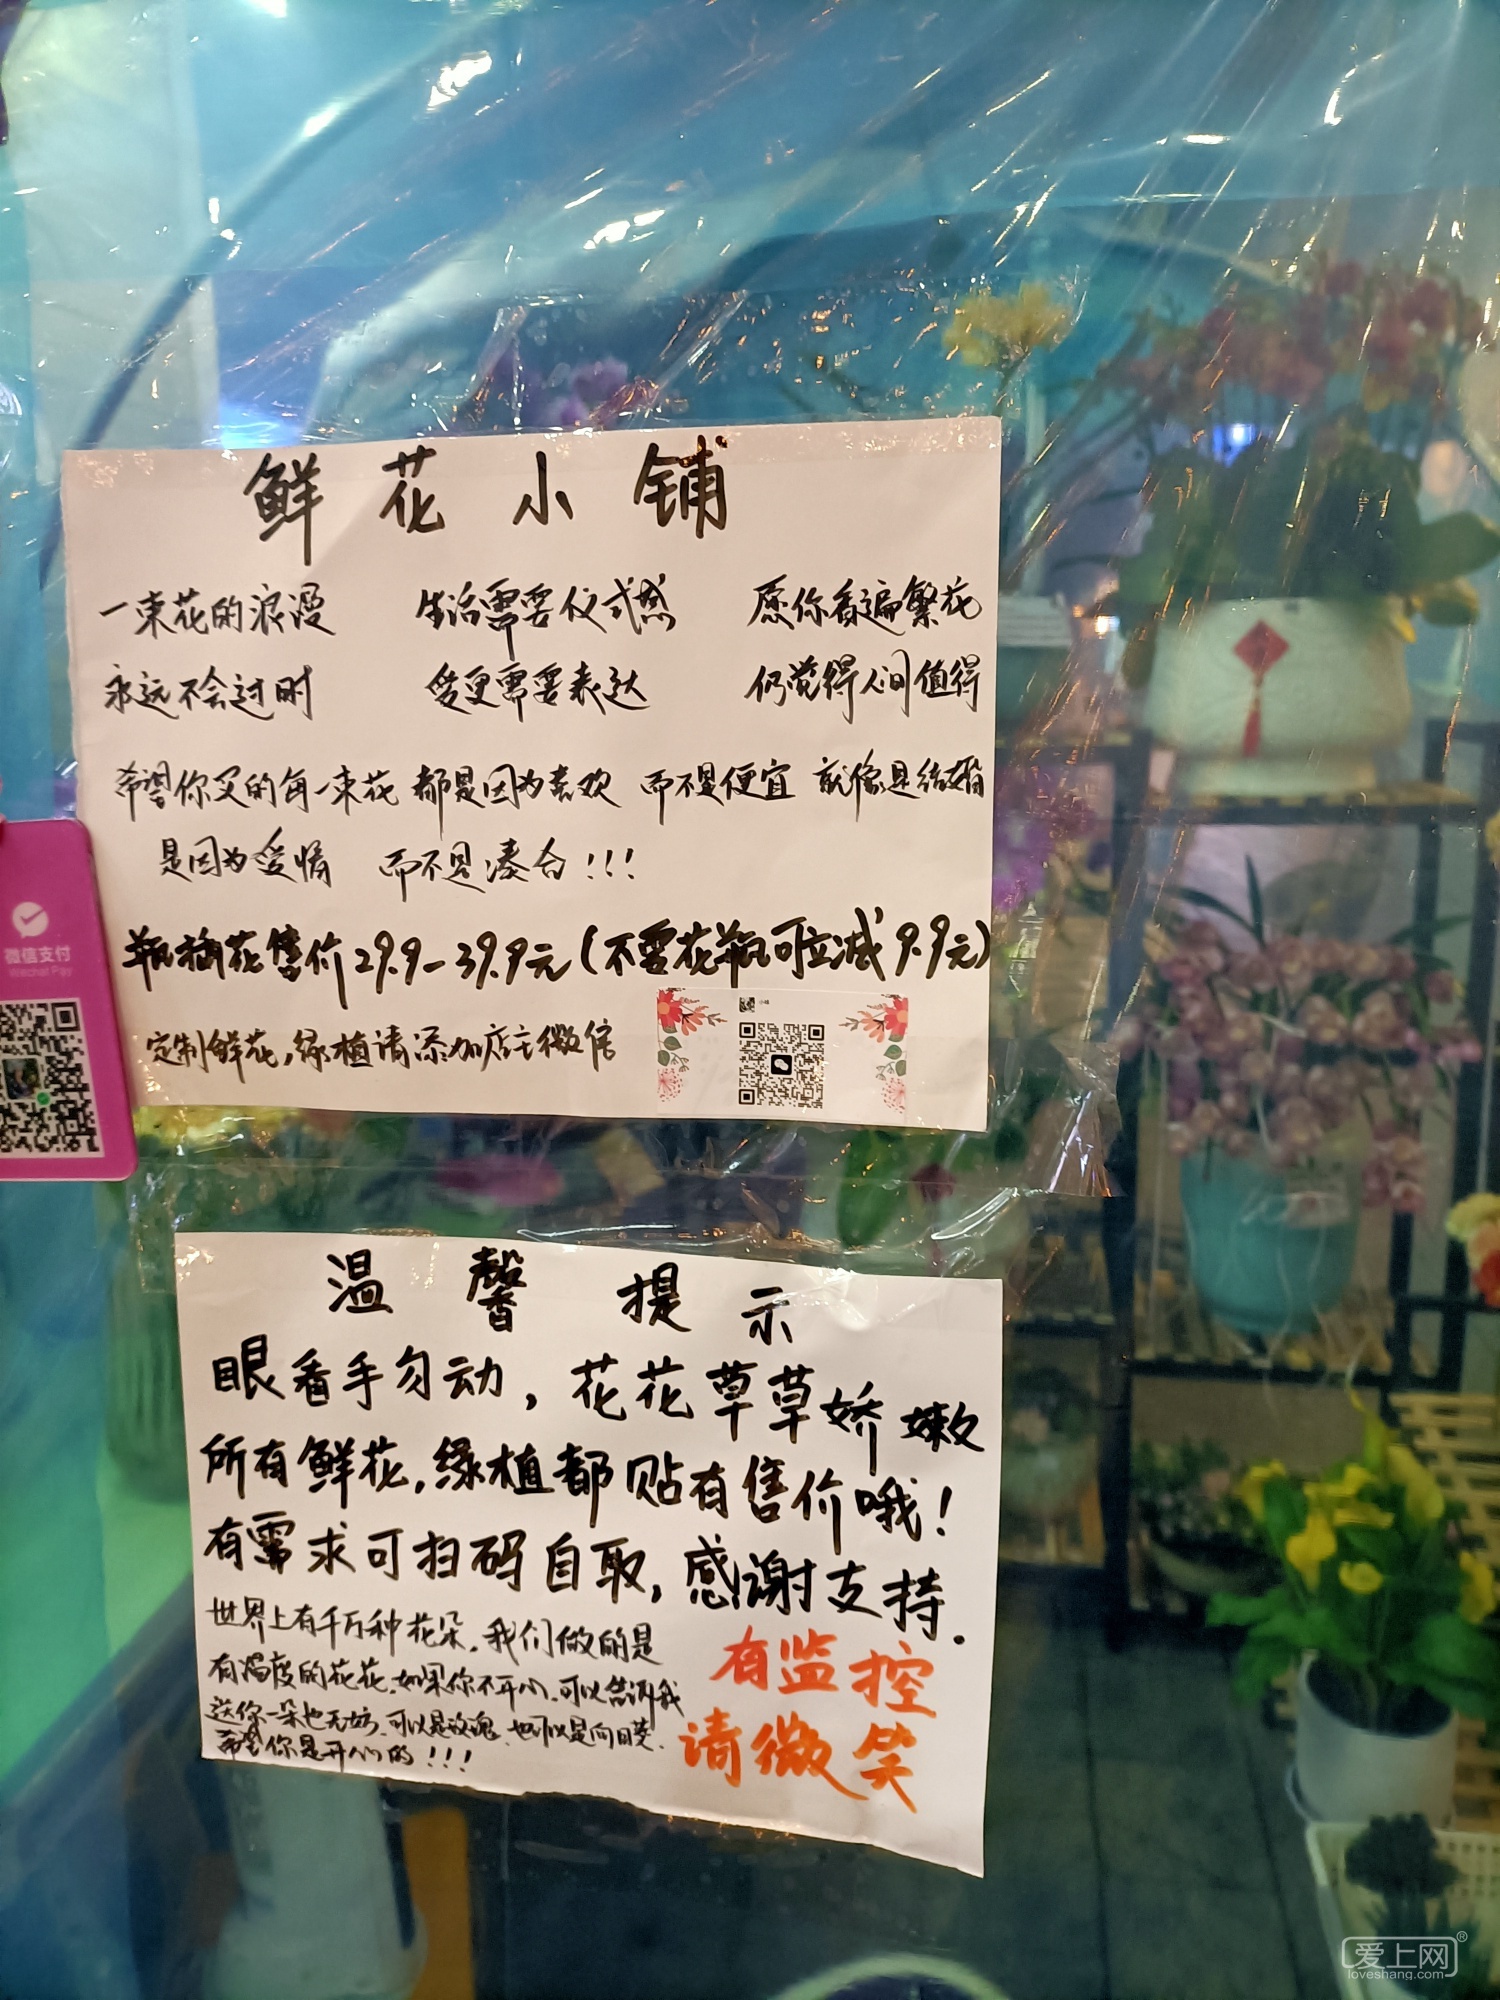 鲜花小铺
一束花的浪漫 生活需要仪式感 愿你看遍繁花
永远不会过时 爱更需要表达 仍觉得人间值得
希望你买的每一束花 都是因为喜欢 而不是便宜 就像是结婚
是因为爱情 而不是凑合!!!
瓶插花售价29.9-39.9元(不要花瓶可立减9.9元)
定制鲜花,绿植请添加店主微信
微信支付
WeChat Pay
温馨提示
眼看手勿动,花花草草娇嫩
所有鲜花,绿植都贴有售价哦!
有需求可扫码自取,感谢支持.
世界上有千万种花朵,我们做的是
有温度的花花.如果你不开心.可以告诉我
送你一朵也无妨.可以是玫瑰.也可以是向日葵.
希望你是开心的!!!
有监控
请微笑
爱上网®
loveshang.com